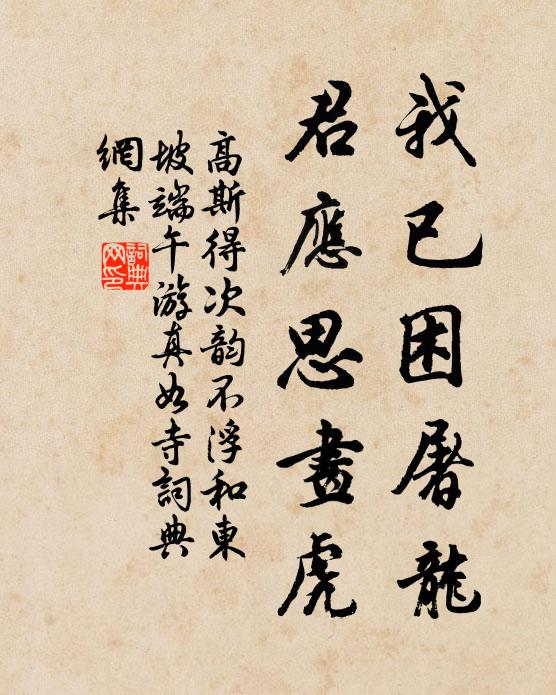 我已困屠龍
君應思畫虎
高斯得次韵不浮和東
坡端午游真如寺詞典
網集
詞典网印